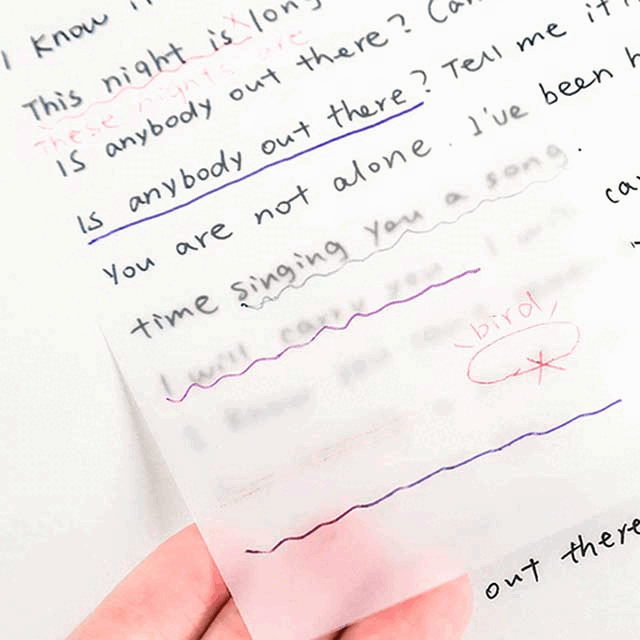 I know
This night is long
These nights are
Is anybody out there?
Is anybody out there? Tell me it
You are not alone. I've been h
time singing you a song.
I will carry you I will
I know you
"bird"
out there